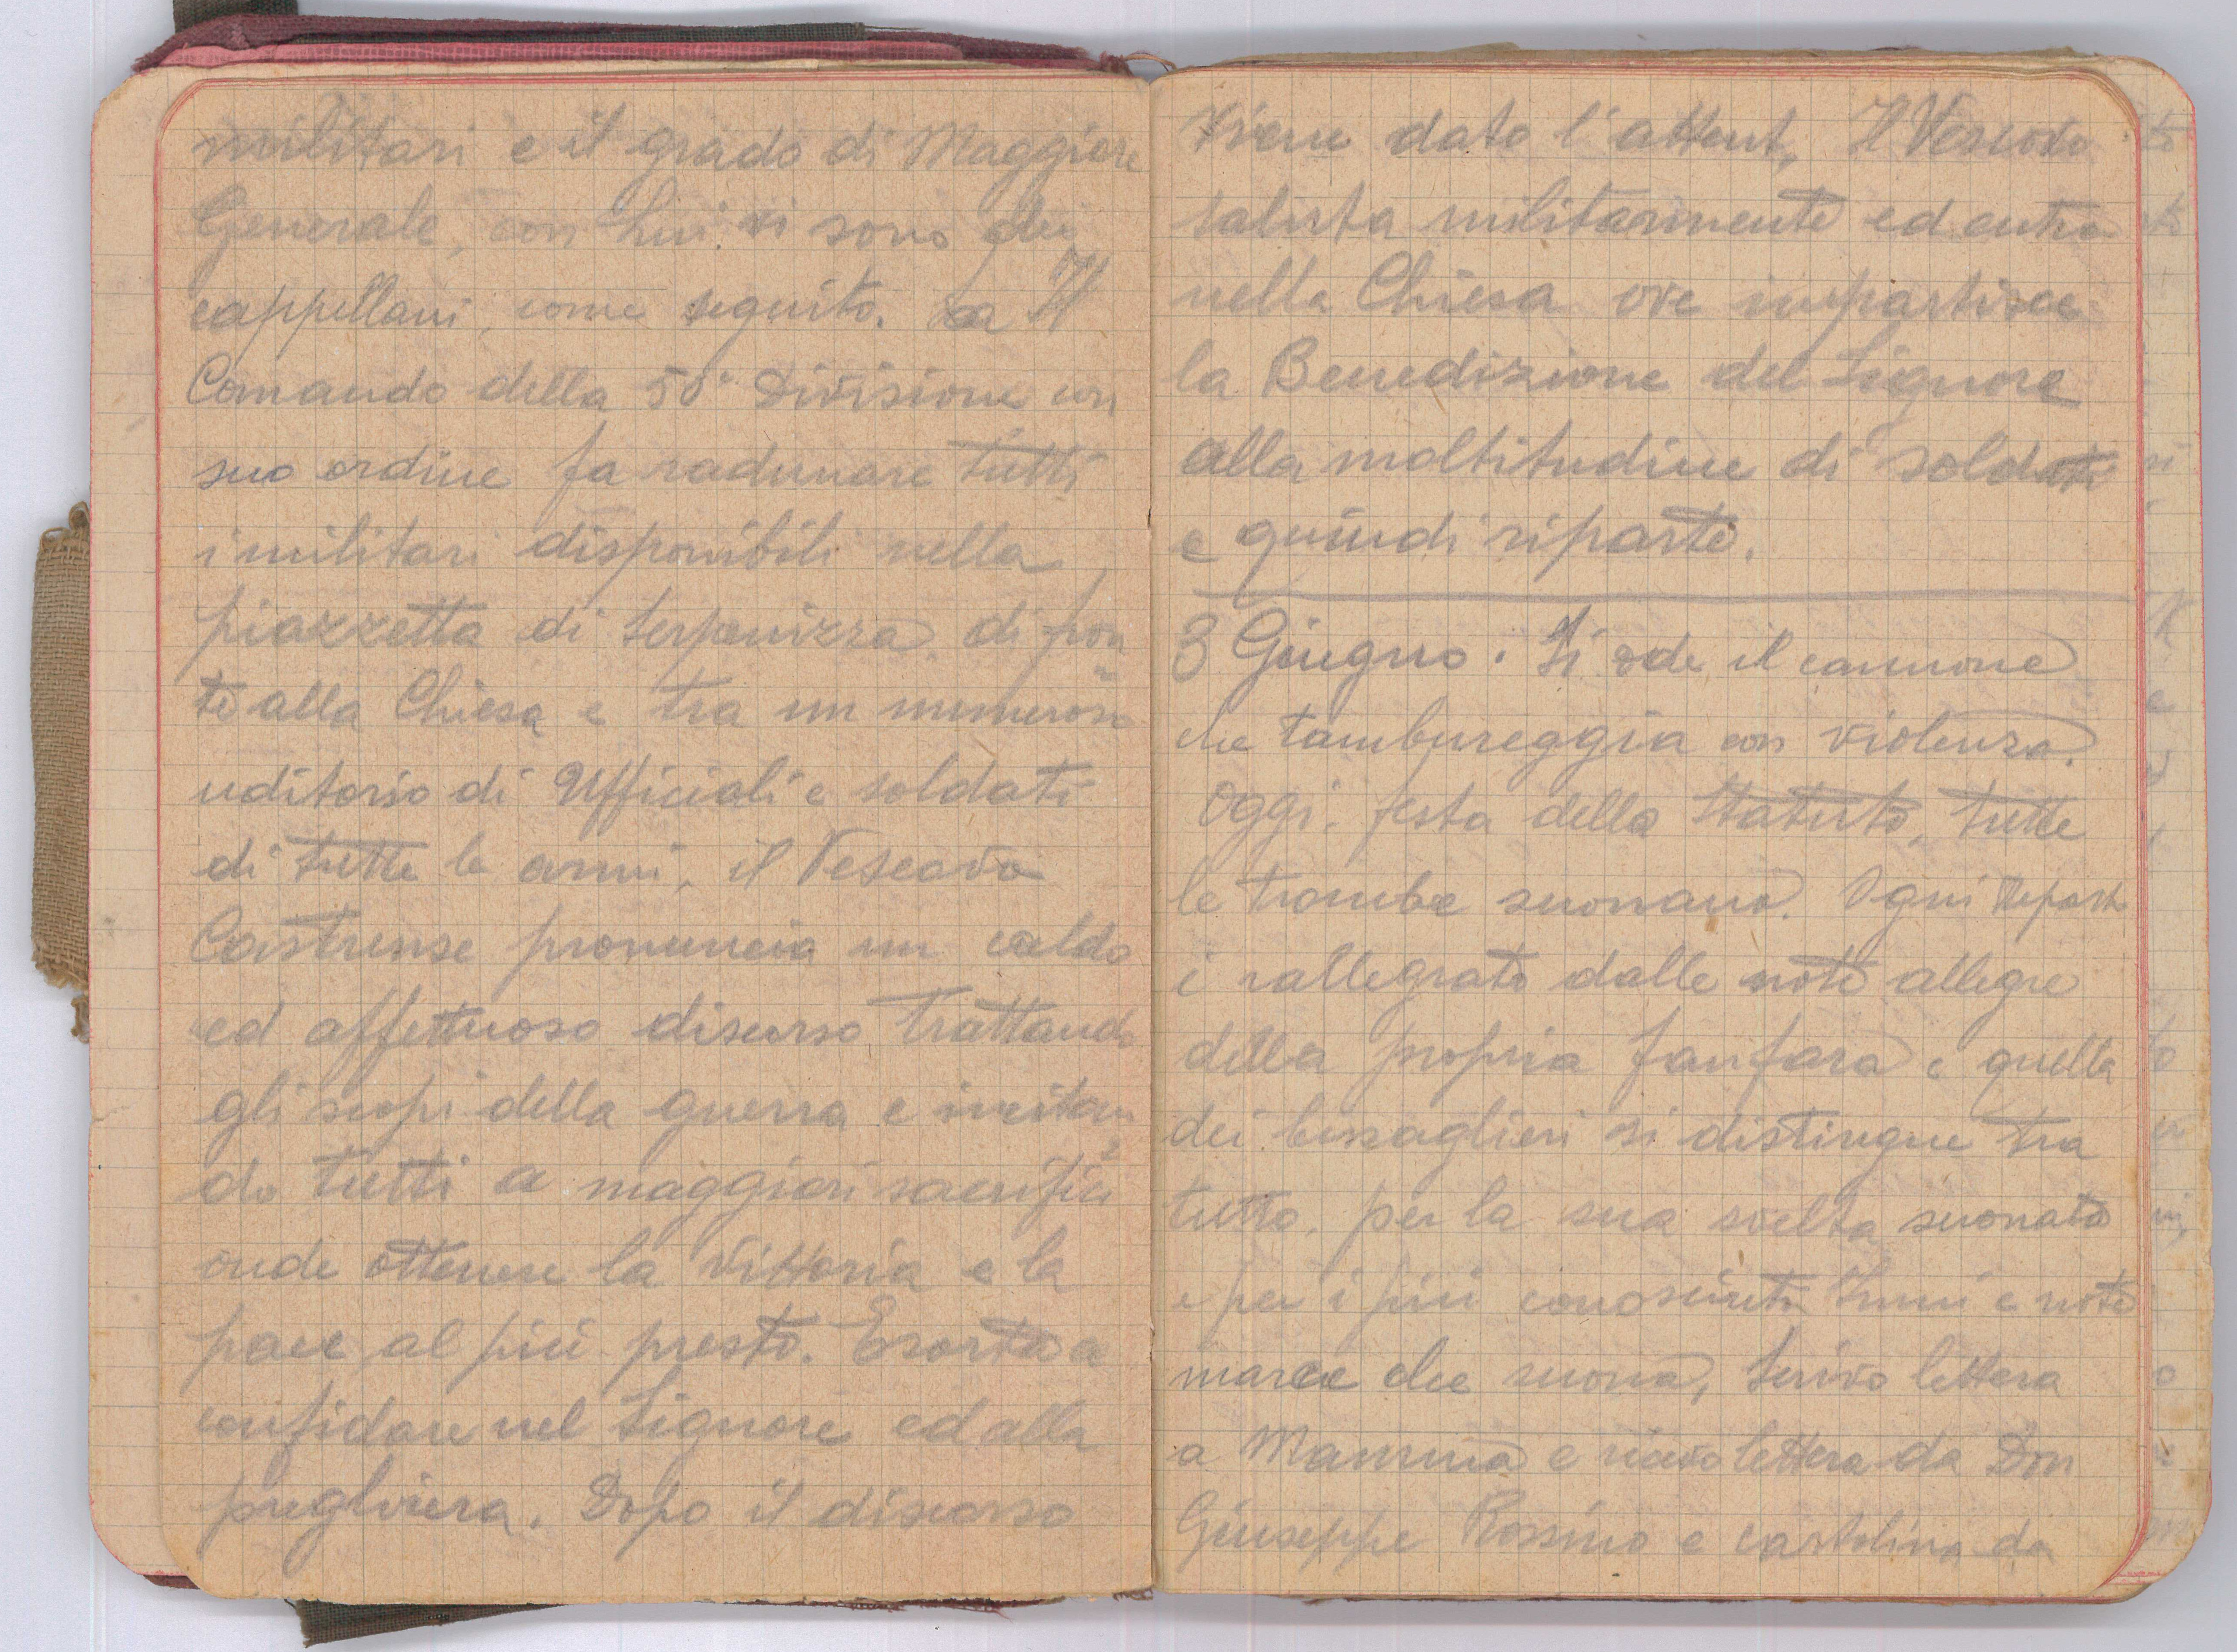 militari e il grado di Maggiore
Generale, con Lui vi sono dei
cappellani, come seguito. Il
Comando della 50ª Divisione con
suo ordine fa radunare tutti
i militari disponibili nella
piazzetta di Serpenizza di fron
te alla Chiesa e tra un numeroso
uditorio di Ufficiali e soldati
di tutte le armi, il Vescovo
Castrense pronuncia un caldo
ed affettuoso discorso trattando
gli scopi della guerra e incitan
do tutti a maggiori sacrifici
onde ottenere la Vittoria e la
pace al più presto. Esorta a
confidare nel Signore ed alla
preghiera. Dopo il discorso
Viene dato l'attent, Il Vescovo
saluta militarmente ed entra
nella Chiesa ove impartisce
la Benedizione del Signore
alla moltitudine di soldati
e quindi riparte.
3 Giugno. Si ode il cannone
che tambureggia con violenza.
Oggi. festa dello Statuto, tutte
le trombe suonano. Ogni Repart
è rallegrato dalle note allegre
della propria fanfara e quella
dei bersaglieri si distingue tra
tutto. per la sua svelta suonata
e per i più conosciuti Inni e note
marce che suona, Scrivo lettera
a Mamma e ricevo lettera da Don
Giuseppe Rossino e cartolina da